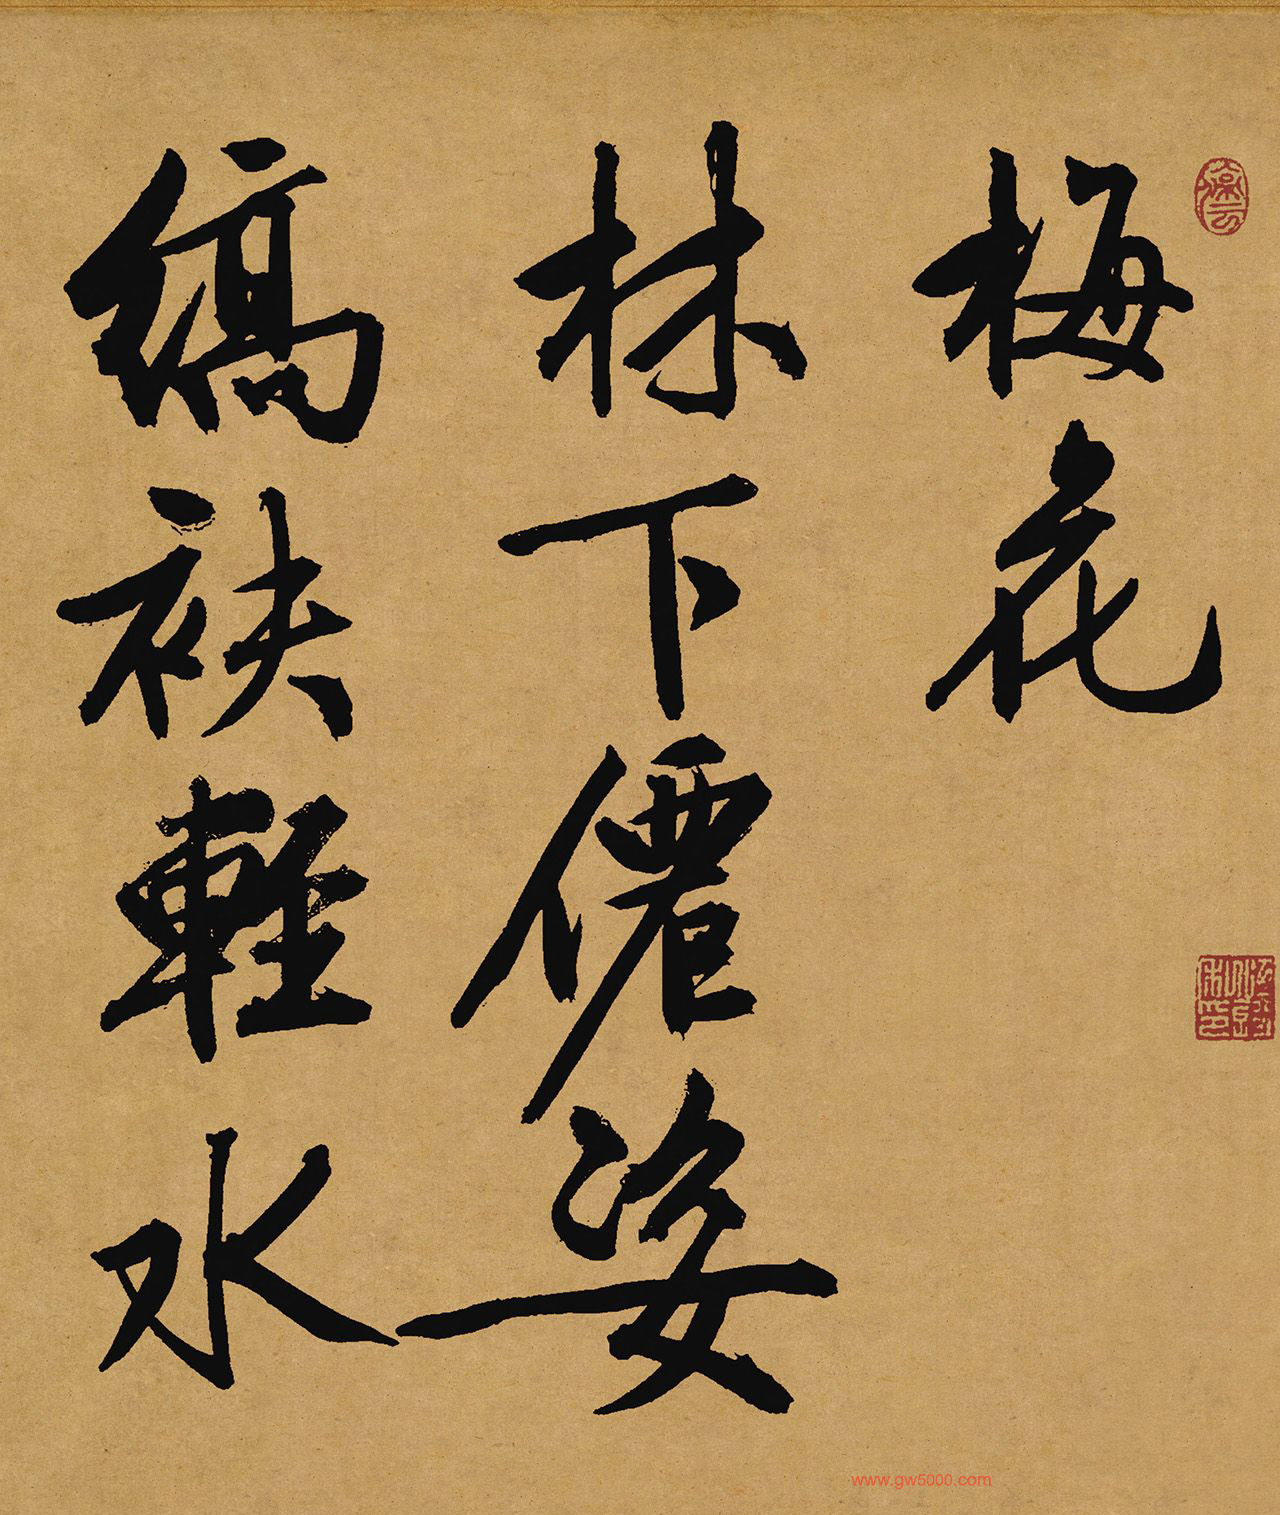 梅花
林下僊姿
縞袂輕水
www.gw5000.com